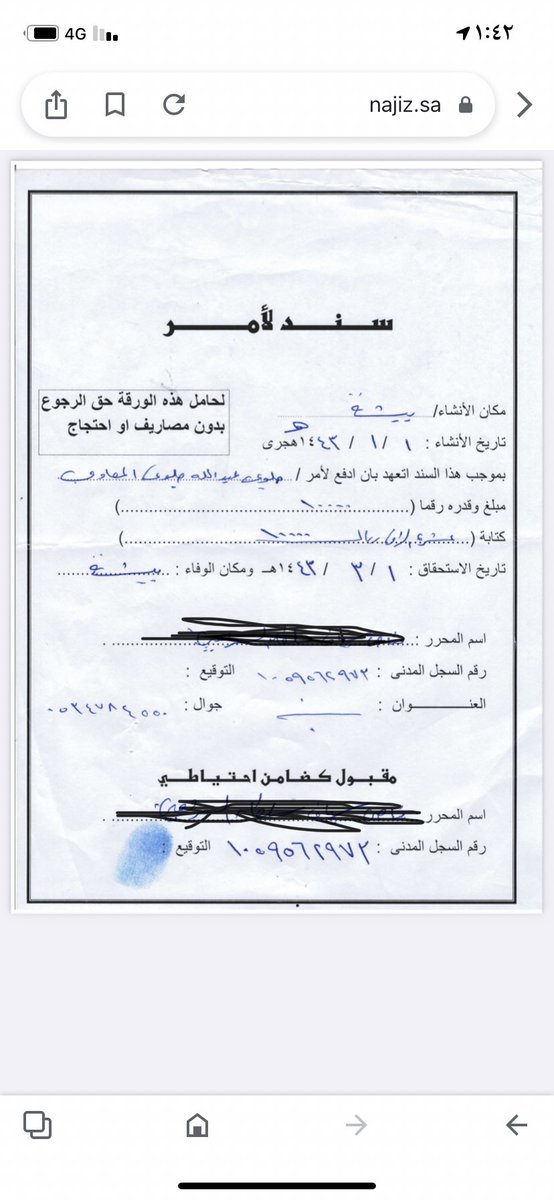 4G ١:٤٢
najiz.sa
سند لأمر
لحامل هذه الورقة حق الرجوع
بدون مصاريف او احتجاج
مكان الأنشاء/ بيشة
تاريخ الأنشاء : ١ / ١ / ١٤٤٣ هـ هجرى
بموجب هذا السند اتعهد بان ادفع لأمر / عبدالله
مبلغ وقدره رقما (١٠٠٠٠)
كتابة ( الاف ريال ١٠٠٠٠)
تاريخ الاستحقاق : ١ / ٣ / ١٤٤٣هـ ومكان الوفاء : بيشة
اسم المحرر :
رقم السجل المدنى : ١٠٥٩٥٦٢٩٧٢ التوقيع :
العنــوان : جوال : ٠٥٣٤٧٨٤٥٥٠
مقبول كضامن احتياطي
اسم المحرر
رقم السجل المدنى : ١٠٥٩٥٦٢٩٧٢ التوقيع :